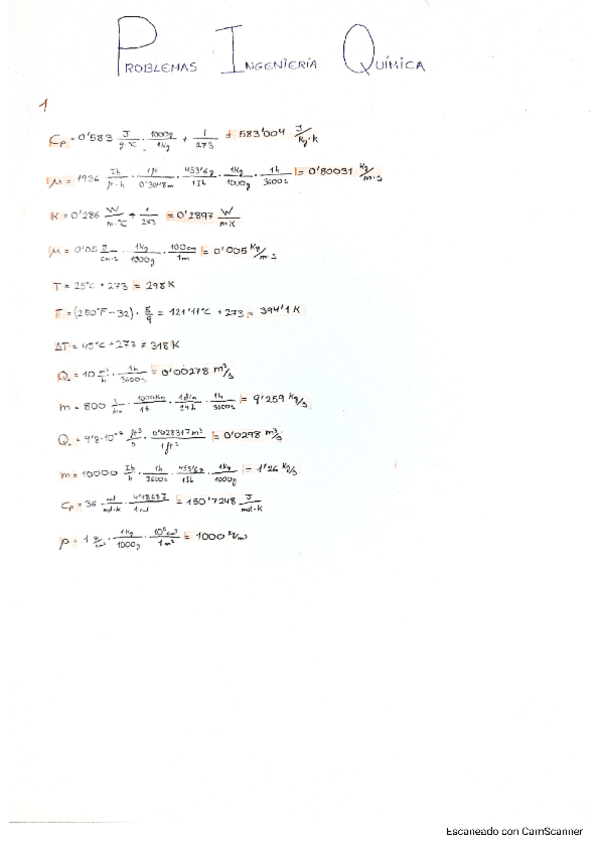 PROBLEMAS INGENIERÍA QUÍMICA
1
Cp = 0'583 J/g°C · 1000g/1kg + 1/273 = 583'004 J/kg·K
μ = 1936 lb/ft·h · 1ft/0'3048m · 453'6g/1lb · 1kg/1000g · 1h/3600s = 0'80031 kg/m·s
K = 0'286 W/m·°C + 1/273 = 0'2897 W/m·K
μ = 0'05 g/cm·s · 1kg/1000g · 100cm/1m = 0'005 kg/m·s
T = 25°C + 273 = 298 K
T = (250°F - 32) · 5/9 = 121'11°C + 273 = 394'1 K
ΔT = 45°C + 273 = 318 K
Q = 10 m³/h · 1h/3600s = 0'00278 m³/s
m = 800 t/día · 1000kg/1t · 1día/24h · 1h/3600s = 9'259 kg/s
Q = ft³/s · 0'028317m³/1ft³ = 0'0298 m³/s
m = 10000 lb/h · 1h/3600s · 453'6g/1lb · 1kg/1000g = 1'26 kg/s
Cp = 36 cal/mol·K · 4'1868J/1cal = 150'7248 J/mol·K
ρ = 1 g/cm³ · 1kg/1000g · 10⁶cm³/1m³ = 1000 kg/m³
Escaneado con CamScanner